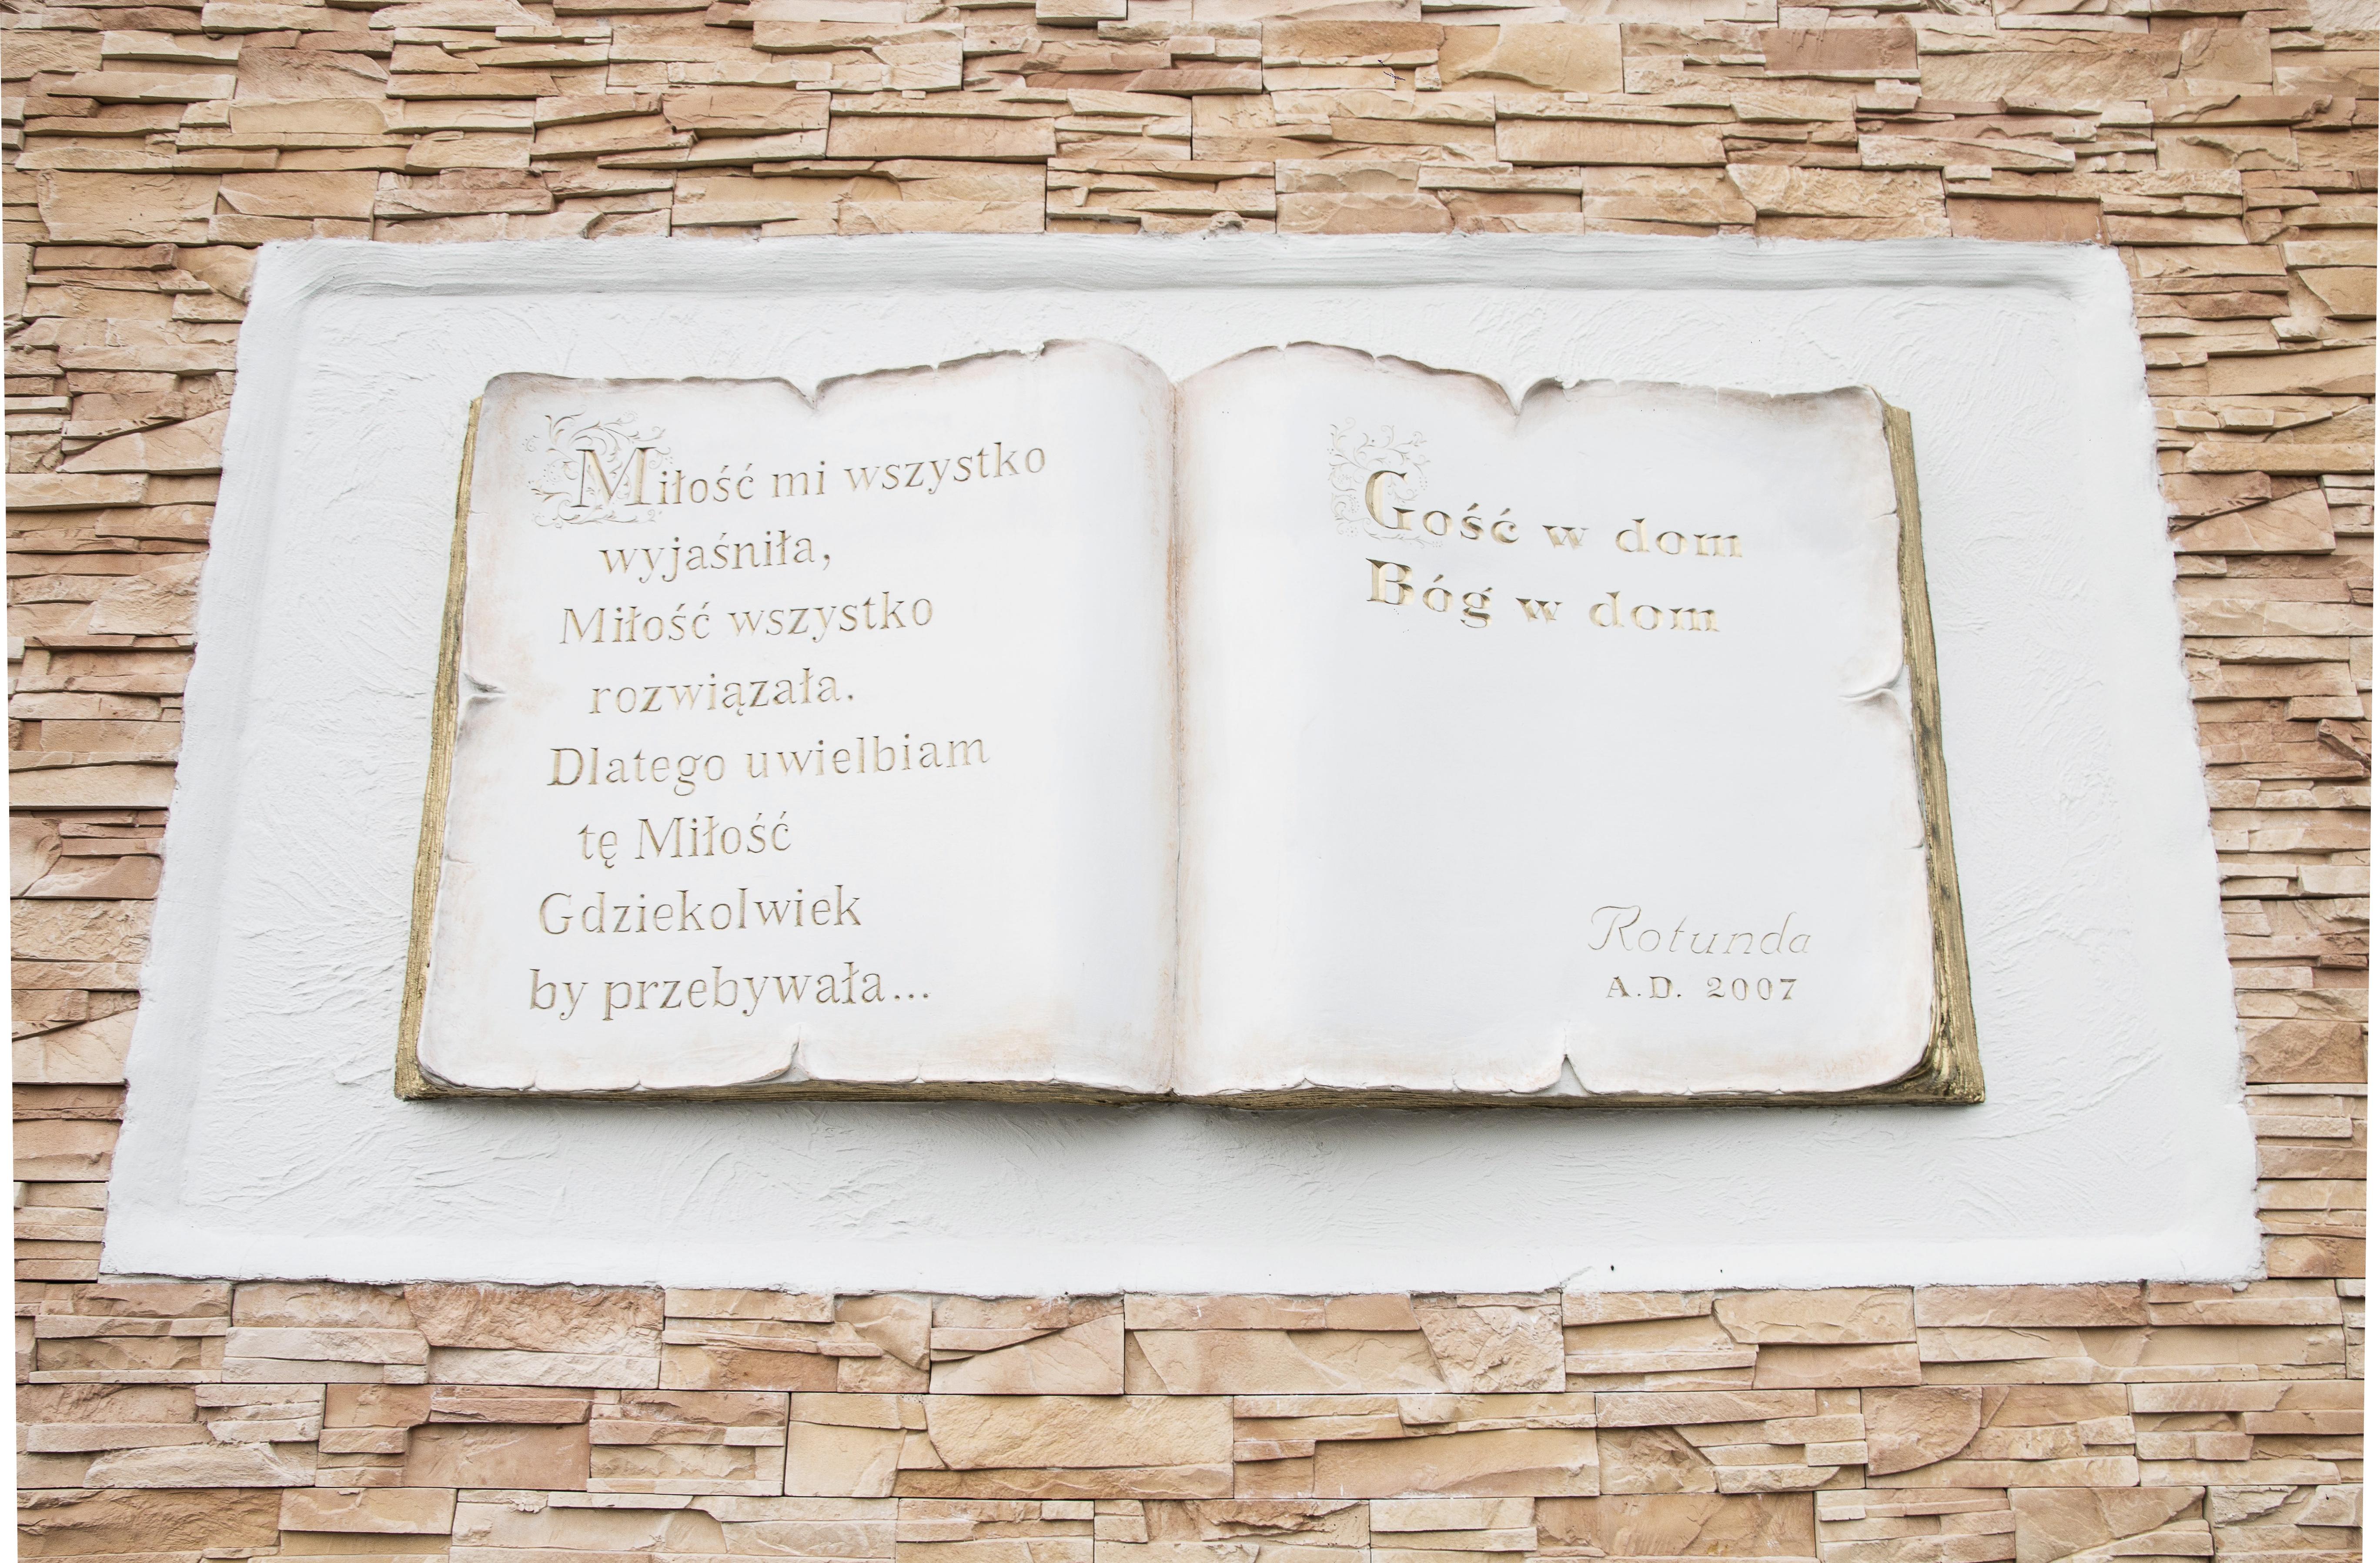 Miłość mi wszystko
wyjaśniła,
Miłość wszystko
rozwiązała.
Dlatego uwielbiam
tę Miłość
Gdziekolwiek
by przebywała...
Gość w dom
Bóg w dom
Rotunda
A.D. 2007